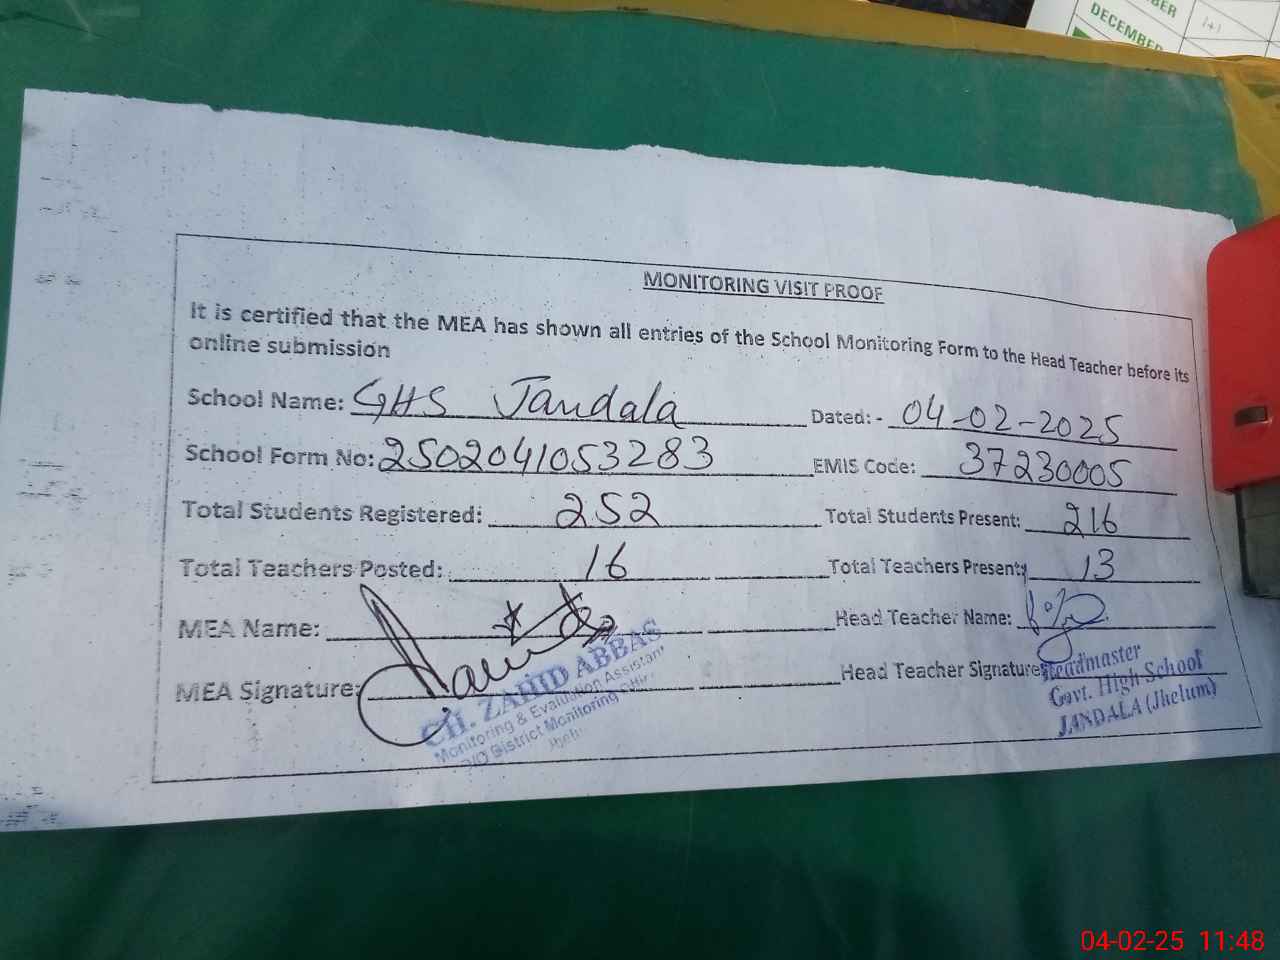 BER
DECEMBER
MONITORING VISIT PROOF
It is certified that the MEA has shown all entries of the School Monitoring Form to the Head Teacher before its
online submission
School Name: GHS Jandala Dated: - 04-02-2025
School Form No: 2502041053283 EMIS Code: 37230005
Total Students Registered: 252 Total Students Present: 216
Total Teachers Posted: 16 Total Teachers Present: 13
MEA Name: Head Teacher Name:
MEA Signature: Head Teacher Signature:
CH. ZAHID ABBAS
Monitoring & Evaluation Assistant
District Monitoring
Headmaster
Govt. High School
JANDALA (Jhelum)
04-02-25 11:48